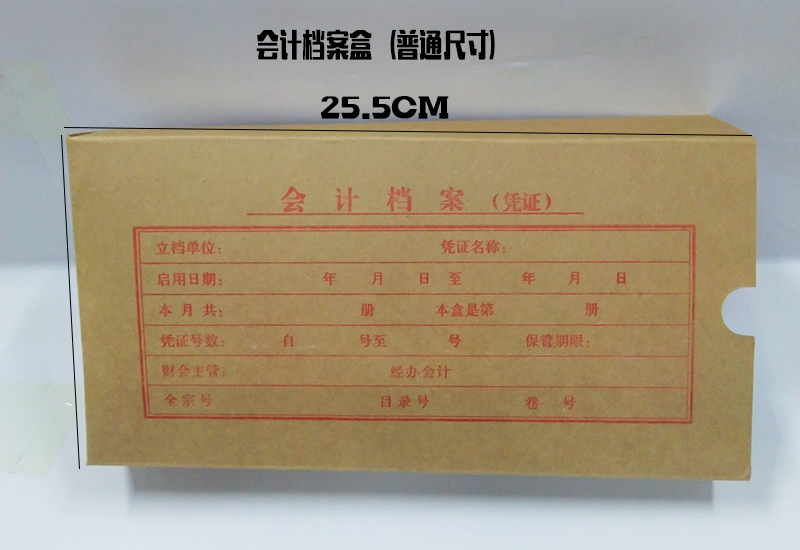 会计档案盒（普通尺寸）
25.5CM
会计档案（凭证）
立档单位： 凭证名称：
启用日期： 年 月 日 至 年 月 日
本月共： 册 本盒是第 册
凭证号数： 自 号至 号 保管期限：
财会主管： 经办会计
全宗号 目录号 卷号